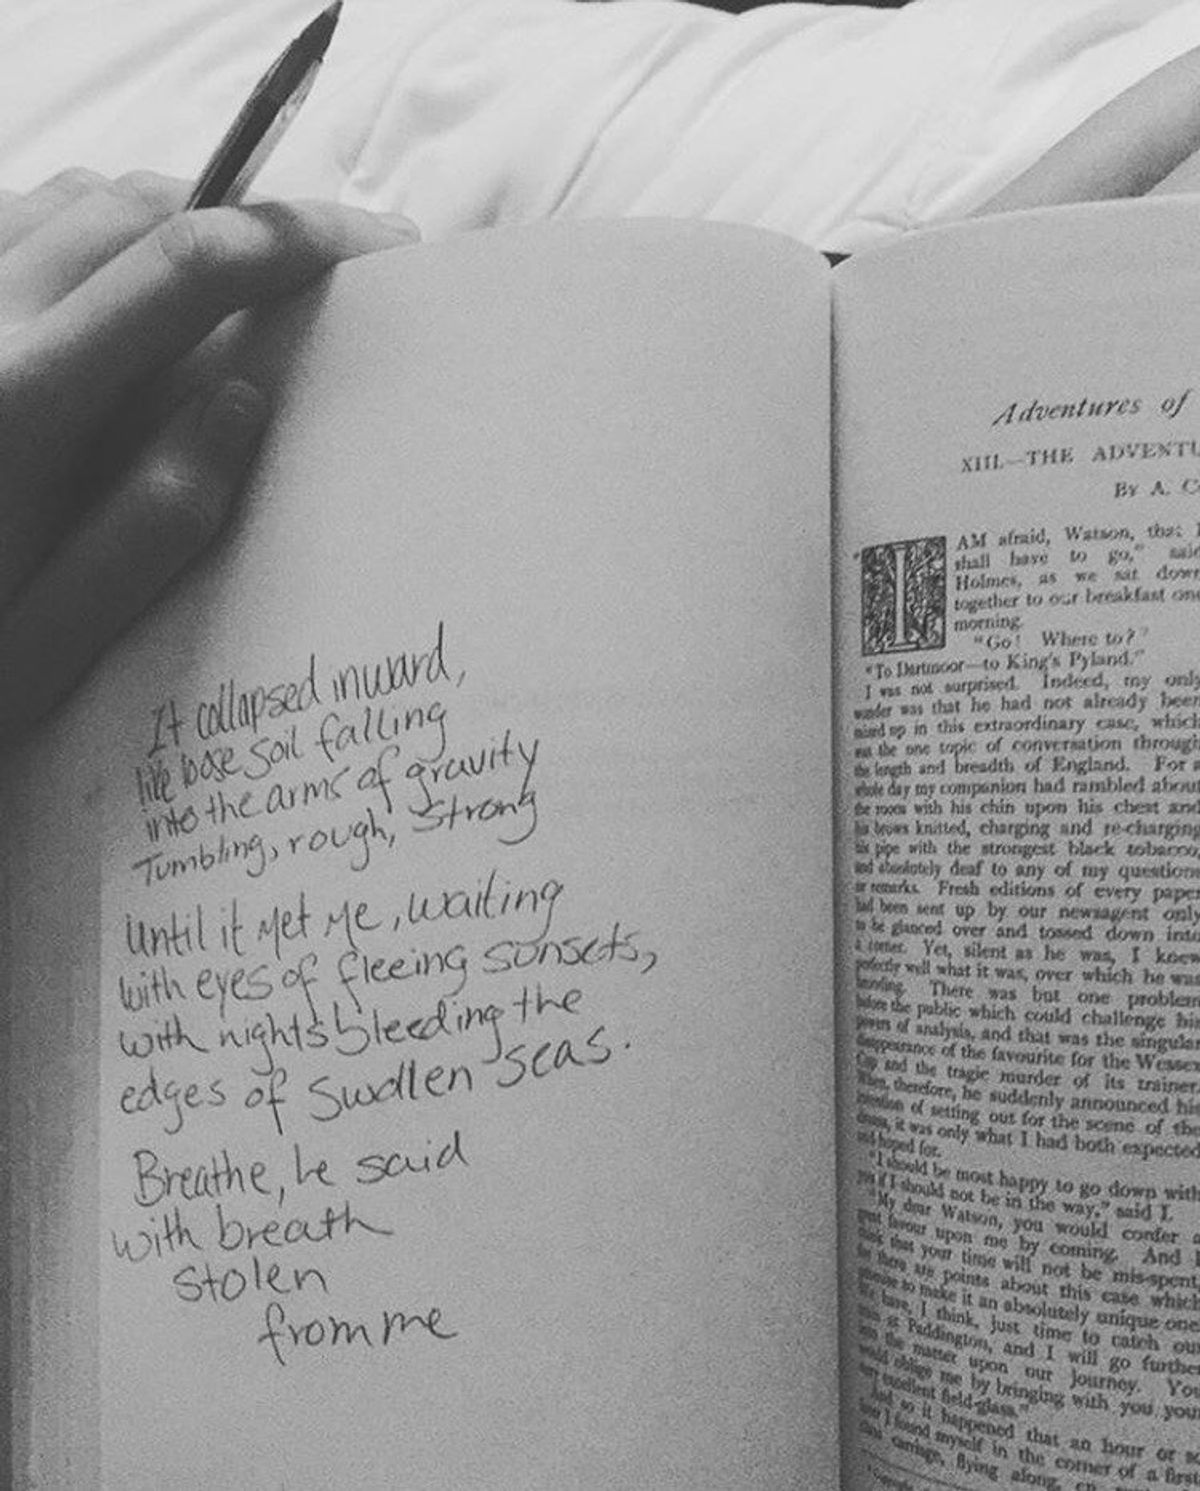 It collapsed inward,
like loose soil falling
into the arms of gravity
Tumbling, rough, strong
Until it met me, waiting
with eyes of fleeing sunsets,
with nights bleeding the
edges of swollen seas.
Breathe, he said
with breath
stolen
from me
Adventures of
XIII.—THE ADVENTU
By A. C
"I AM afraid, Watson, that I
shall have to go," said
Holmes, as we sat down
together to our breakfast one
morning.
"Go! Where to?"
"To Dartmoor—to King's Pyland."
I was not surprised. Indeed, my only
wonder was that he had not already been
mixed up in this extraordinary case, which
was the one topic of conversation through
the length and breadth of England. For a
whole day my companion had rambled about
the room with his chin upon his chest and
his brows knitted, charging and re-charging
his pipe with the strongest black tobacco,
and absolutely deaf to any of my questions
or remarks. Fresh editions of every paper
had been sent up by our newsagent only
to be glanced over and tossed down into
a corner. Yet, silent as he was, I knew
perfectly well what it was, over which he was
brooding. There was but one problem
before the public which could challenge his
powers of analysis, and that was the singular
disappearance of the favourite for the Wessex
Cup and the tragic murder of its trainer.
When, therefore, he suddenly announced his
intention of setting out for the scene of the
drama, it was only what I had both expected
and hoped for.
"I should be most happy to go down with
you if I should not be in the way," said I.
"My dear Watson, you would confer a
great favour upon me by coming. And I
think that your time will not be mis-spent,
for there are points about this case which
promise to make it an absolutely unique one.
We have, I think, just time to catch our
train at Paddington, and I will go further
into the matter upon our journey. You
would oblige me by bringing with you your
very excellent field-glass."
And so it happened that an hour or so
later I found myself in the corner of a first
class carriage, flying along, en